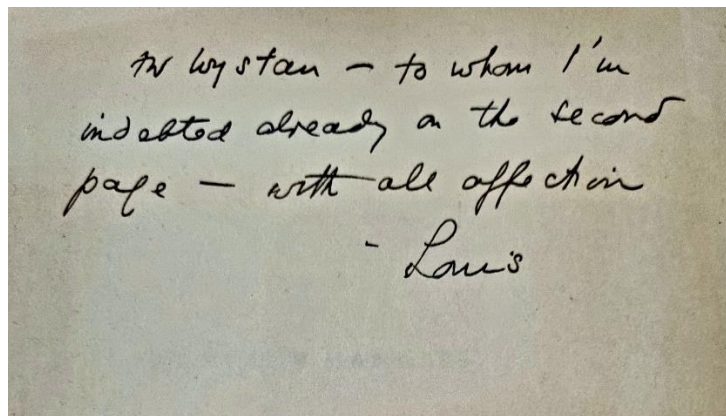 for Wystan – to whom I'm
indebted already on the second
page – with all affection
- Louis